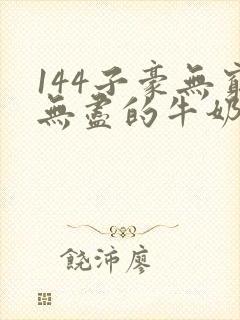 144子豪無窮
無盡的牛奶
饒沛廖